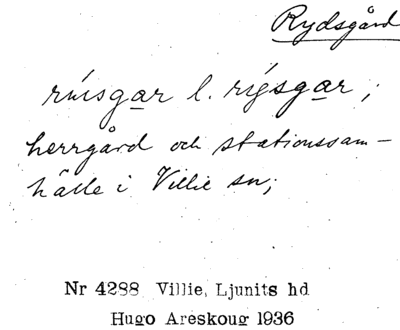 Rydsgård
rúsgar l. rýsgar;
herrgård och stationssam-
hälle i Villie sn;
Nr 4288 Villie, Ljunits hd
Hugo Areskoug 1936